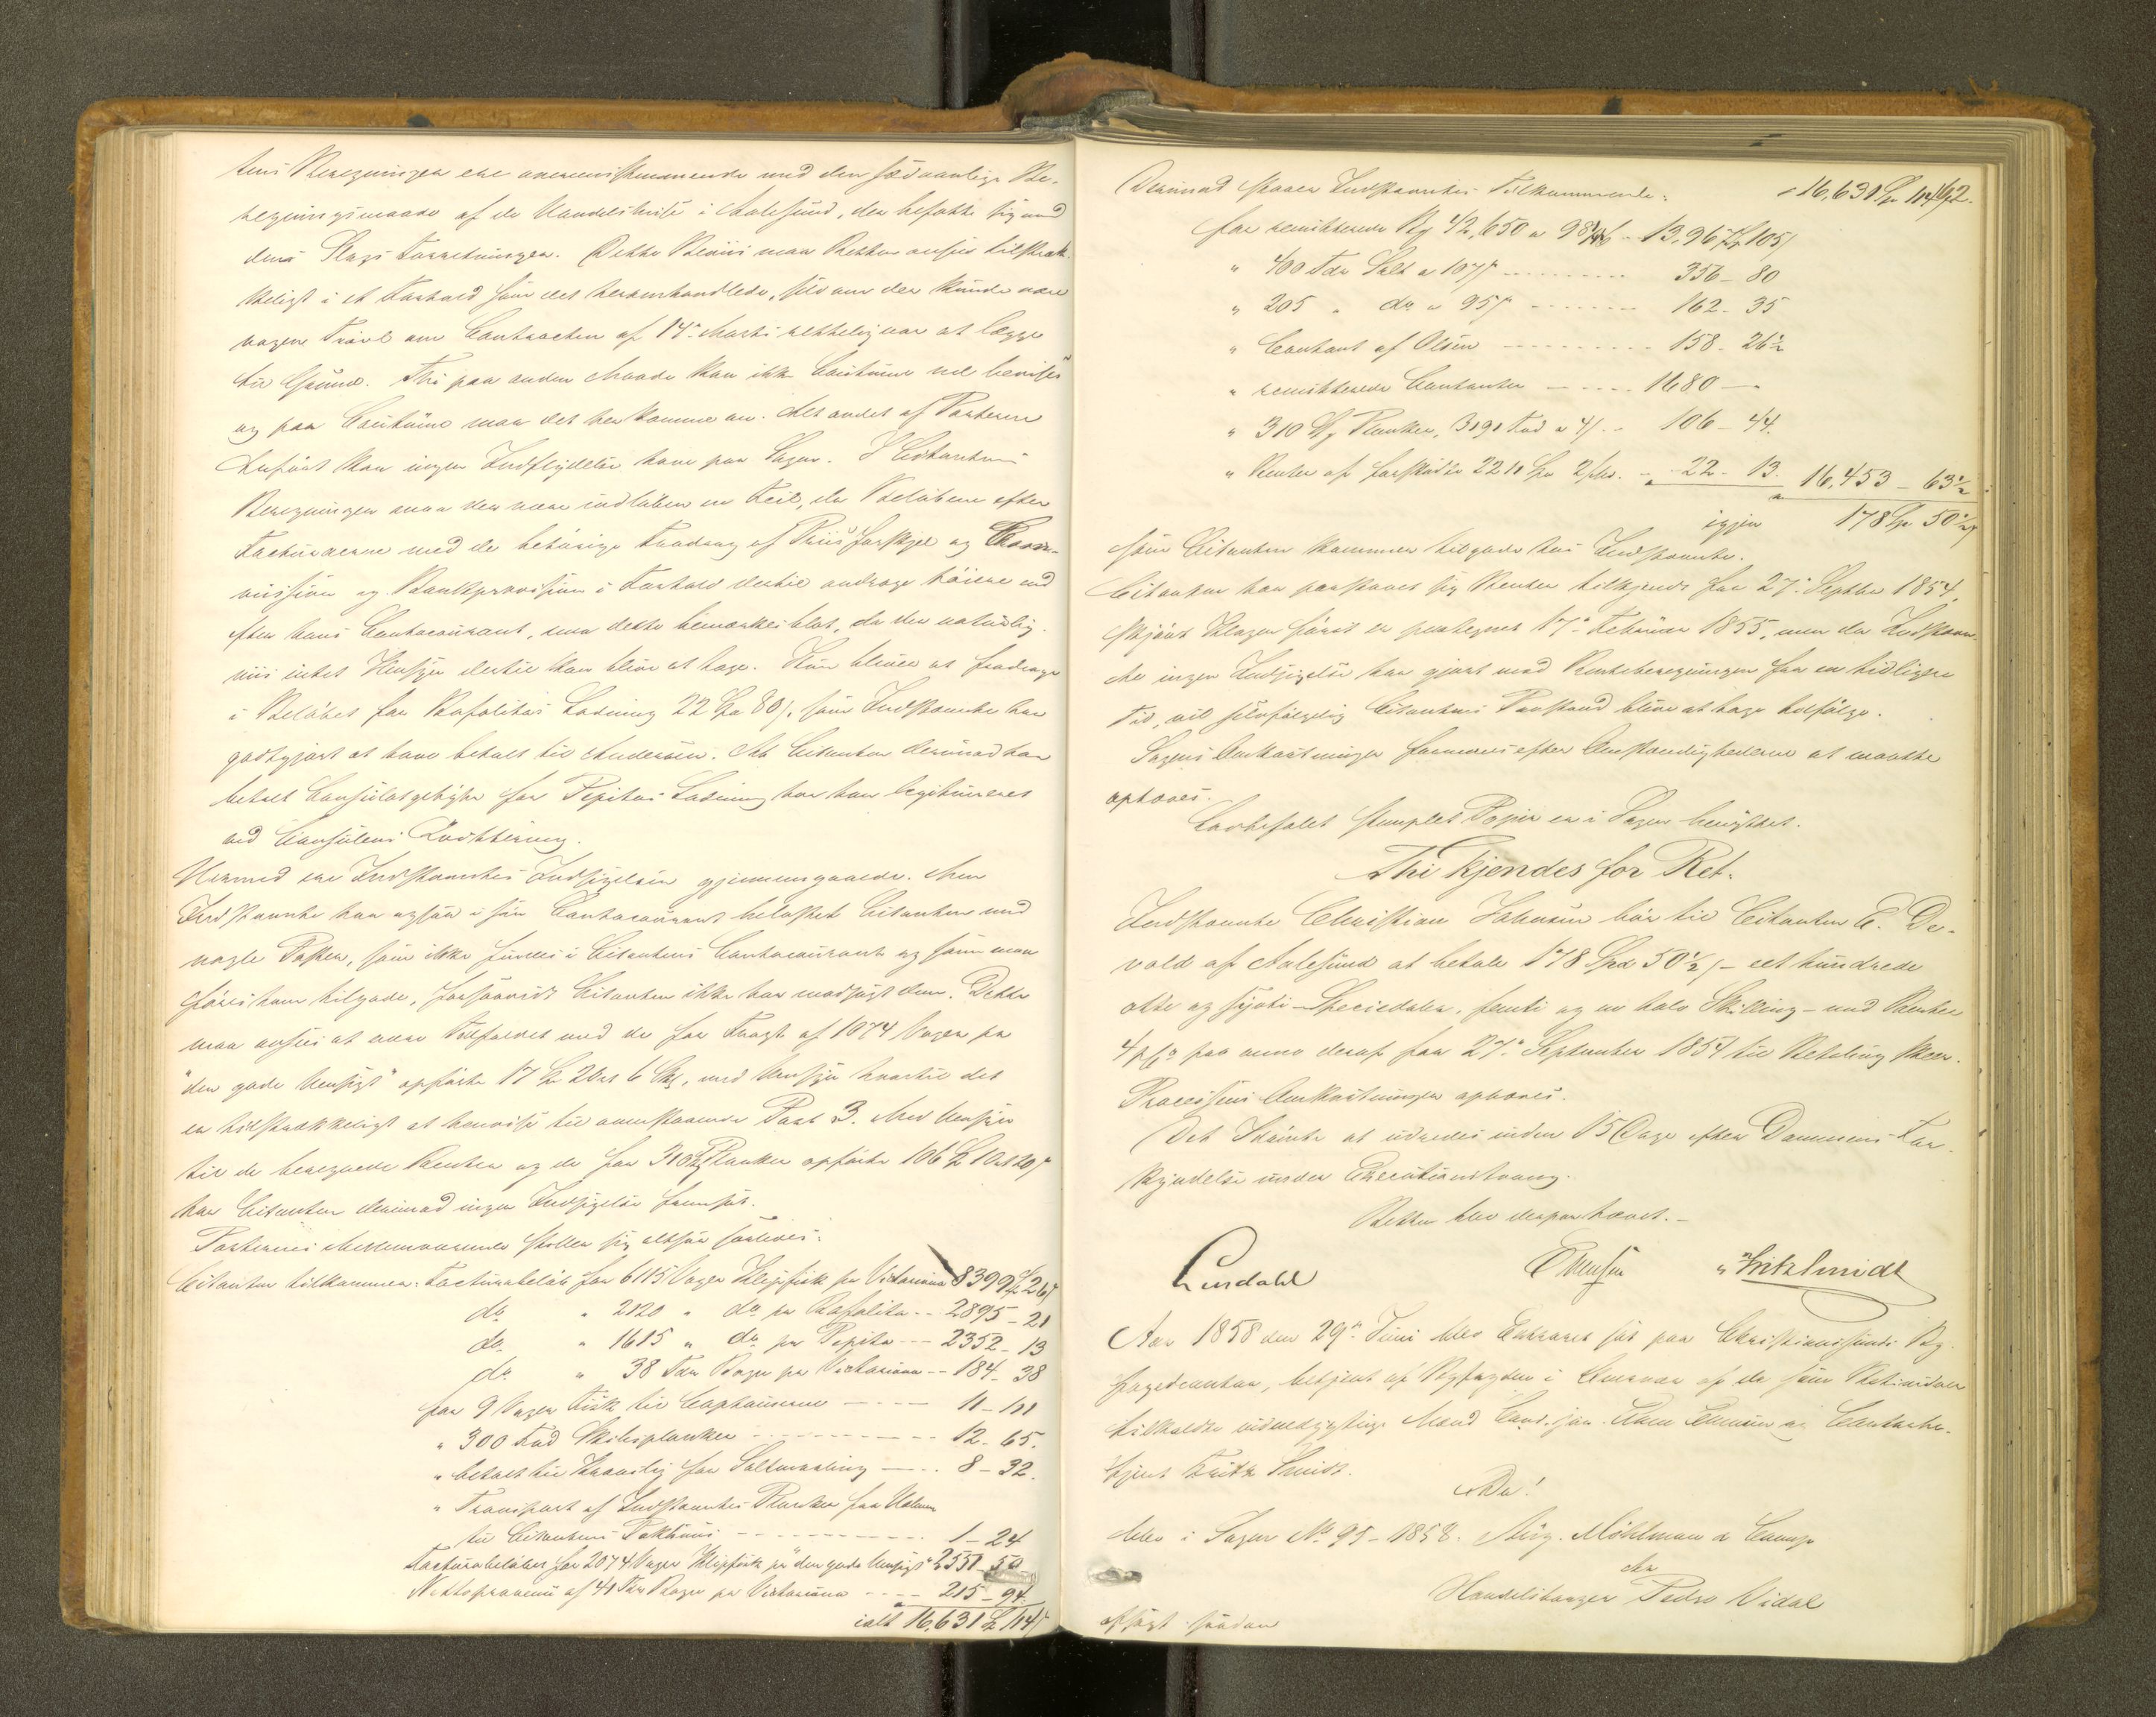 tens Beregninger ere overensstemmende med den sædvanlige Be-
regningsmaade af de Handelshuse i Aalesund, der befatte sig med
dens Slags Forretninger. Dette Beviis maa Retten ansee tilstræk-
keligt i et Forhold som det heromhandlede, selv om der kunde være
nogen Tvivl om Contracten af 14de Marts rettelig var at lægge
til Grund. Thi paa anden Maade kan ikke Coutume vel bevises
og paa Coutume maa det her komme an. Alt andet af Parterne
Anført kan ingen Indflydelse have paa Sagen. I Citantens
Beregninger maa der være indløben en Feil, da Beløbene efter
Facturaerne med de behørige Fradrag af Priis forskjel og Com-
mission og Bankprovision i Forhold dertil andrage høiere end
efter hans Contocourant, men dette bemærkes blot, da der naturlig-
viis intet Hensyn dertil kan blive at tage. Kun bliver at fradrage
i Beløbet for Rafaelitas Ladning 22 Spd 80 s. som Indstævnte har
godtgjort at have betalt til Andersen. At Citanten derimod har
betalt Consulatgebyhr for Pepitas Ladning har han legitimeret
ved Consulens Qvittering.
Hermed ere Indstævntes Indsigelser gjennemgaaede. Men
Indstævnte har ogsaa i sin Contocourant belastet Citanten med
nogle Poster, som ikke findes i Citantens Contocourant og som maa
føres ham tilgode, forsaavidt Citanten ikke har modsagt dem. Dette
maa ansees at være Tilfældet med de for Fragt af 1074 Voger pr
"den gode Hensigt" opførte 17 Spd 2 Ort 6 Skl, med Hensyn hvortil det
er tilstrækkeligt at henvise til ovenstaaende Post 3. Med Hensyn
til de beregnede Renter og de for 310 Planker opførte 106 Spd 1 Ort 20 s
har Citanten derimod ingen Indsigelse fremsat.
Parternes Mellemværende stiller sig altsaa saaledes:
Citanten tilkommer: Facturabeløb for 6115 Voger Klipfisk pr Victoriana 8399 Spd 26 s
do " 2120 " do pr Rafaelita -- 2895 - 21
do " 1615 " do pr Pepita --- 2352 - 13
do " 38 Tdr Rogn pr Victoriana -- 184 - 38
for 9 Voger Fisk til Caphausene ---- 11 - 101
" 300 Fod Skibsplanker ---------- 12 - 65.
" betalt til for Saltmaaling ---- 8 - 32.
" Transport af Indstævntes Planker fra
til Citantens Pakhuus ---------- 1 - 24
Facturabeløbet for 2074 Voger Klipfisk pr "den gode Hensigt" 2551 - 50
Nettoprovenu af 41 Tdr Rogn pr Victoriana ---- 215 - 94.
ialt 16,631 Spd 114 s
Derimod staaer Indstævntes Tilkommende: 16,631 Spd 114 s
for remitterede 42,650 a - 13,967 Spd 105 s
" 400 Tdr Salt a 107 s --------- 356 - 80
" 205 " do a 95 s -------- 162 - 35
" Contant af Olsen --------- 158 - 26½
" remitterede Contanter ----- 1680 - "
" 310 Planker, 3191 Fod a 4 s -- 106 - 44.
" Renter af forskudte 2211 Spd -- 22 - 13. 16,453 - 63½
igjen 178 Spd 50½ s
som Citanten kommer tilgode hos Indstævnte.
Citanten har paastaaet sig Renter tilkjendt fra 27de Septbr 1854,
skjønt Klagen først er paategnet 17de Februar 1855, men da Indstævn-
te ingen Indsigelse har gjort mod Renteberegningen fra en tidligere
Tid, vil selvfølgelig Citantens Paastand blive at tage tilfølge.
Sagens Omkostninger formenes efter Omstændighederne at maatte
ophæves.
Lovbefalet stemplet Papir er i Sagen benyttet.
Thi kjendes for Ret.
Indstævnte Christian Johnsen bør til Citanten E. De-
vold af Aalesund at betale 178 Spd 50½ s - eet hundrede
otte og sytti Speciedaler, femti og en halv Skilling - med Renter
4 pCt pro anno deraf fra 27de September 1854 til Betaling skeer.
Processens Omkostninger ophæves.
Det Idømte at udredes inden 15 Dage efter Dommens For-
kyndelse under Executionstvang.
Retten blev derpaa hævet. -
Lindahl Fritz Smidt
Aar 1858 den 29de Juni blev Extraret sat paa Christianssunds By-
fogedcontor, betjent af Byfogden i Overvær af de som Retsvidner
tilkaldte vidnedygtige Mænd Cand. jur. og Contorbe-
tjent Fritz Smidt.
Da!
blev i Sagen No 95 - 1858. Aug. Möhlman & Comp
ctra
Handelsborger Pedro Vidal
afsagt saadan